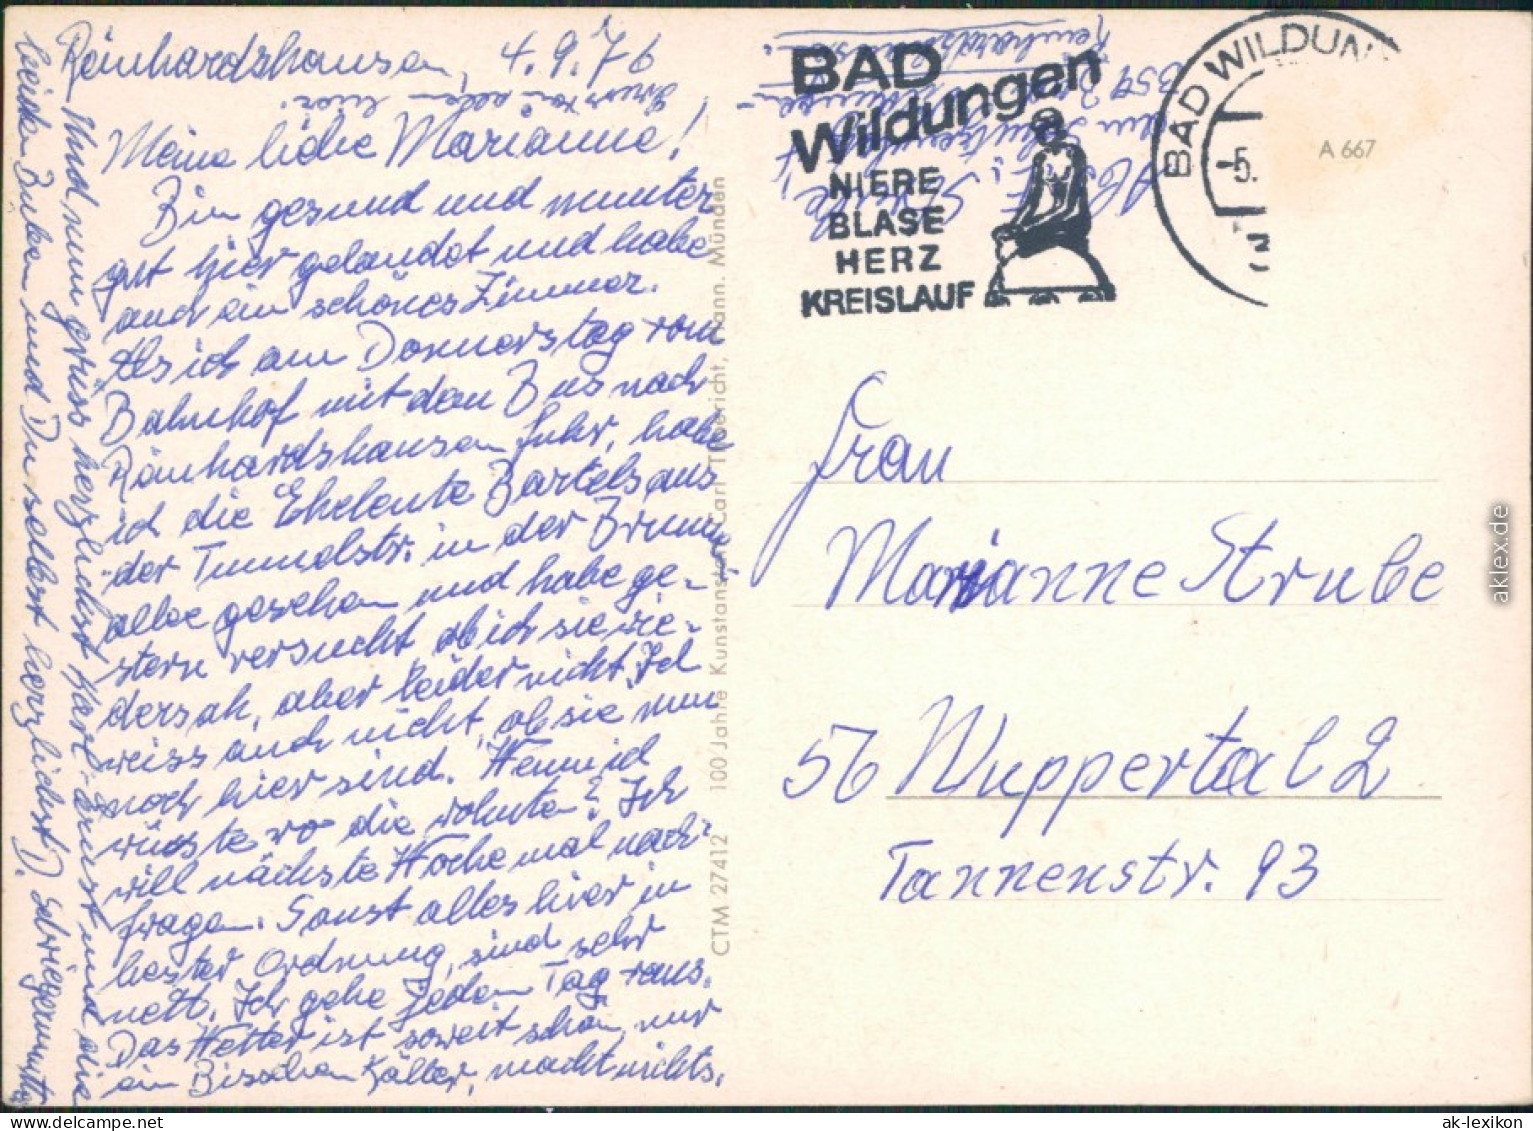 Reinhardshausen, 4.9.76
Gruss von allen hier.
Meine liebe Marianne!
Bin gesund und munter
gut hier gelandet und habe
auch ein schönes Zimmer.
Als ich am Donnerstag vom
Bahnhof mit dem Bus nach
Reinhardshausen fuhr, habe
ich die Eheleute Bartels aus
der Tunnelstr. in der Brunnen
allee gesehen und habe ge-
stern versucht ob ich sie wie-
dersah, aber leider nicht. Ich
weiss auch nicht, ob sie nun
noch hier sind. Wenn ich
wüsste wo die wohnten? Ich
will nächste Woche mal nach-
fragen. Sonst alles hier in
bester Ordnung, sind sehr
nett. Ich gehe jeden Tag raus.
Das Wetter ist soweit schön, nur
ein Bisschen Kälter, macht nichts.
Und nun grüss herzlichst Karl-Ernst und die
beiden Buben und Du selbst herzlichst D. Schwiegermutter
CTM 27412 100 Jahre Kunstanstalt Carl Thoericht, Hann. Münden
BAD
Wildungen
NIERE
BLASE
HERZ
KREISLAUF
BAD WILDUN
-5.
A 667
Abs.
Strube
354 Bad
Wildungen-
Reinhardshausen
Frau
Marianne Strube
56 Wuppertal 2
Tannenstr. 93
aklex.de
ak-lexikon